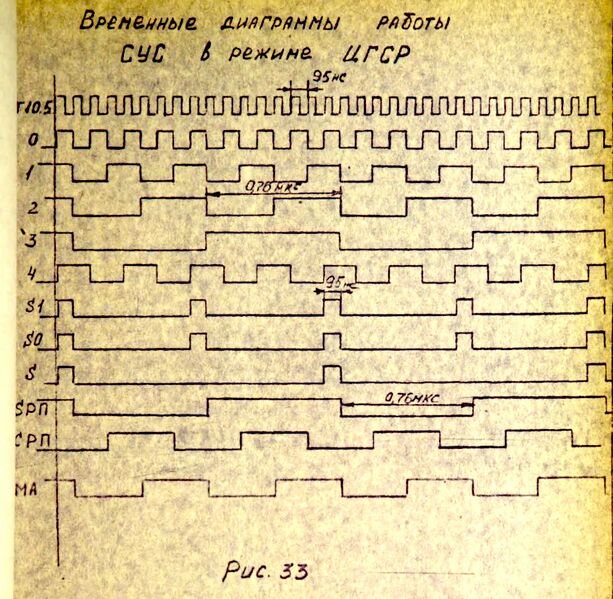 Временные диаграммы работы
СУС в режиме ЦГСР
95нс
T10.5
0
1
0,76мкс
2
3
4
95нс
S1
S0
S
0,76мкс
SРП
СРП
МА
Рис. 33